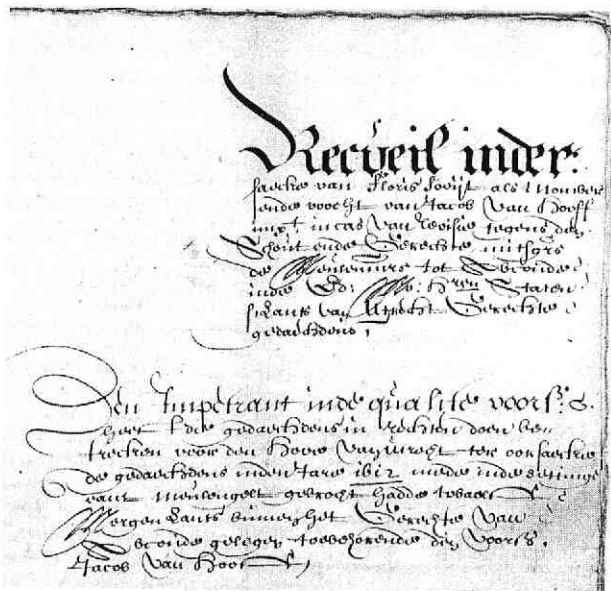 Recveil inder
saecke van Floris Sooijt als Momber
ende voocht van Jacob van Hooff
imp.t in cas van revisie tegens den
Schout ende Gerechte mitsgrs
de Meulenmrs tot
inde Ed: Mo: Hren Staten
slants van Utrecht Gerechte
gedaechdens,
Den Impetrant inde qualite voors. S.
heeft de gedaechdens in rechten doen be
trecken voor den Hoove van Utrecht ter oorsaecke
de gedaechdens inden Jare 1612 mede inde
vant meulengelt gebrocht hadde
Mergen Lants binnen het Gerechte van
gelegen toebehorende den voors.
Jacob van Hooff,